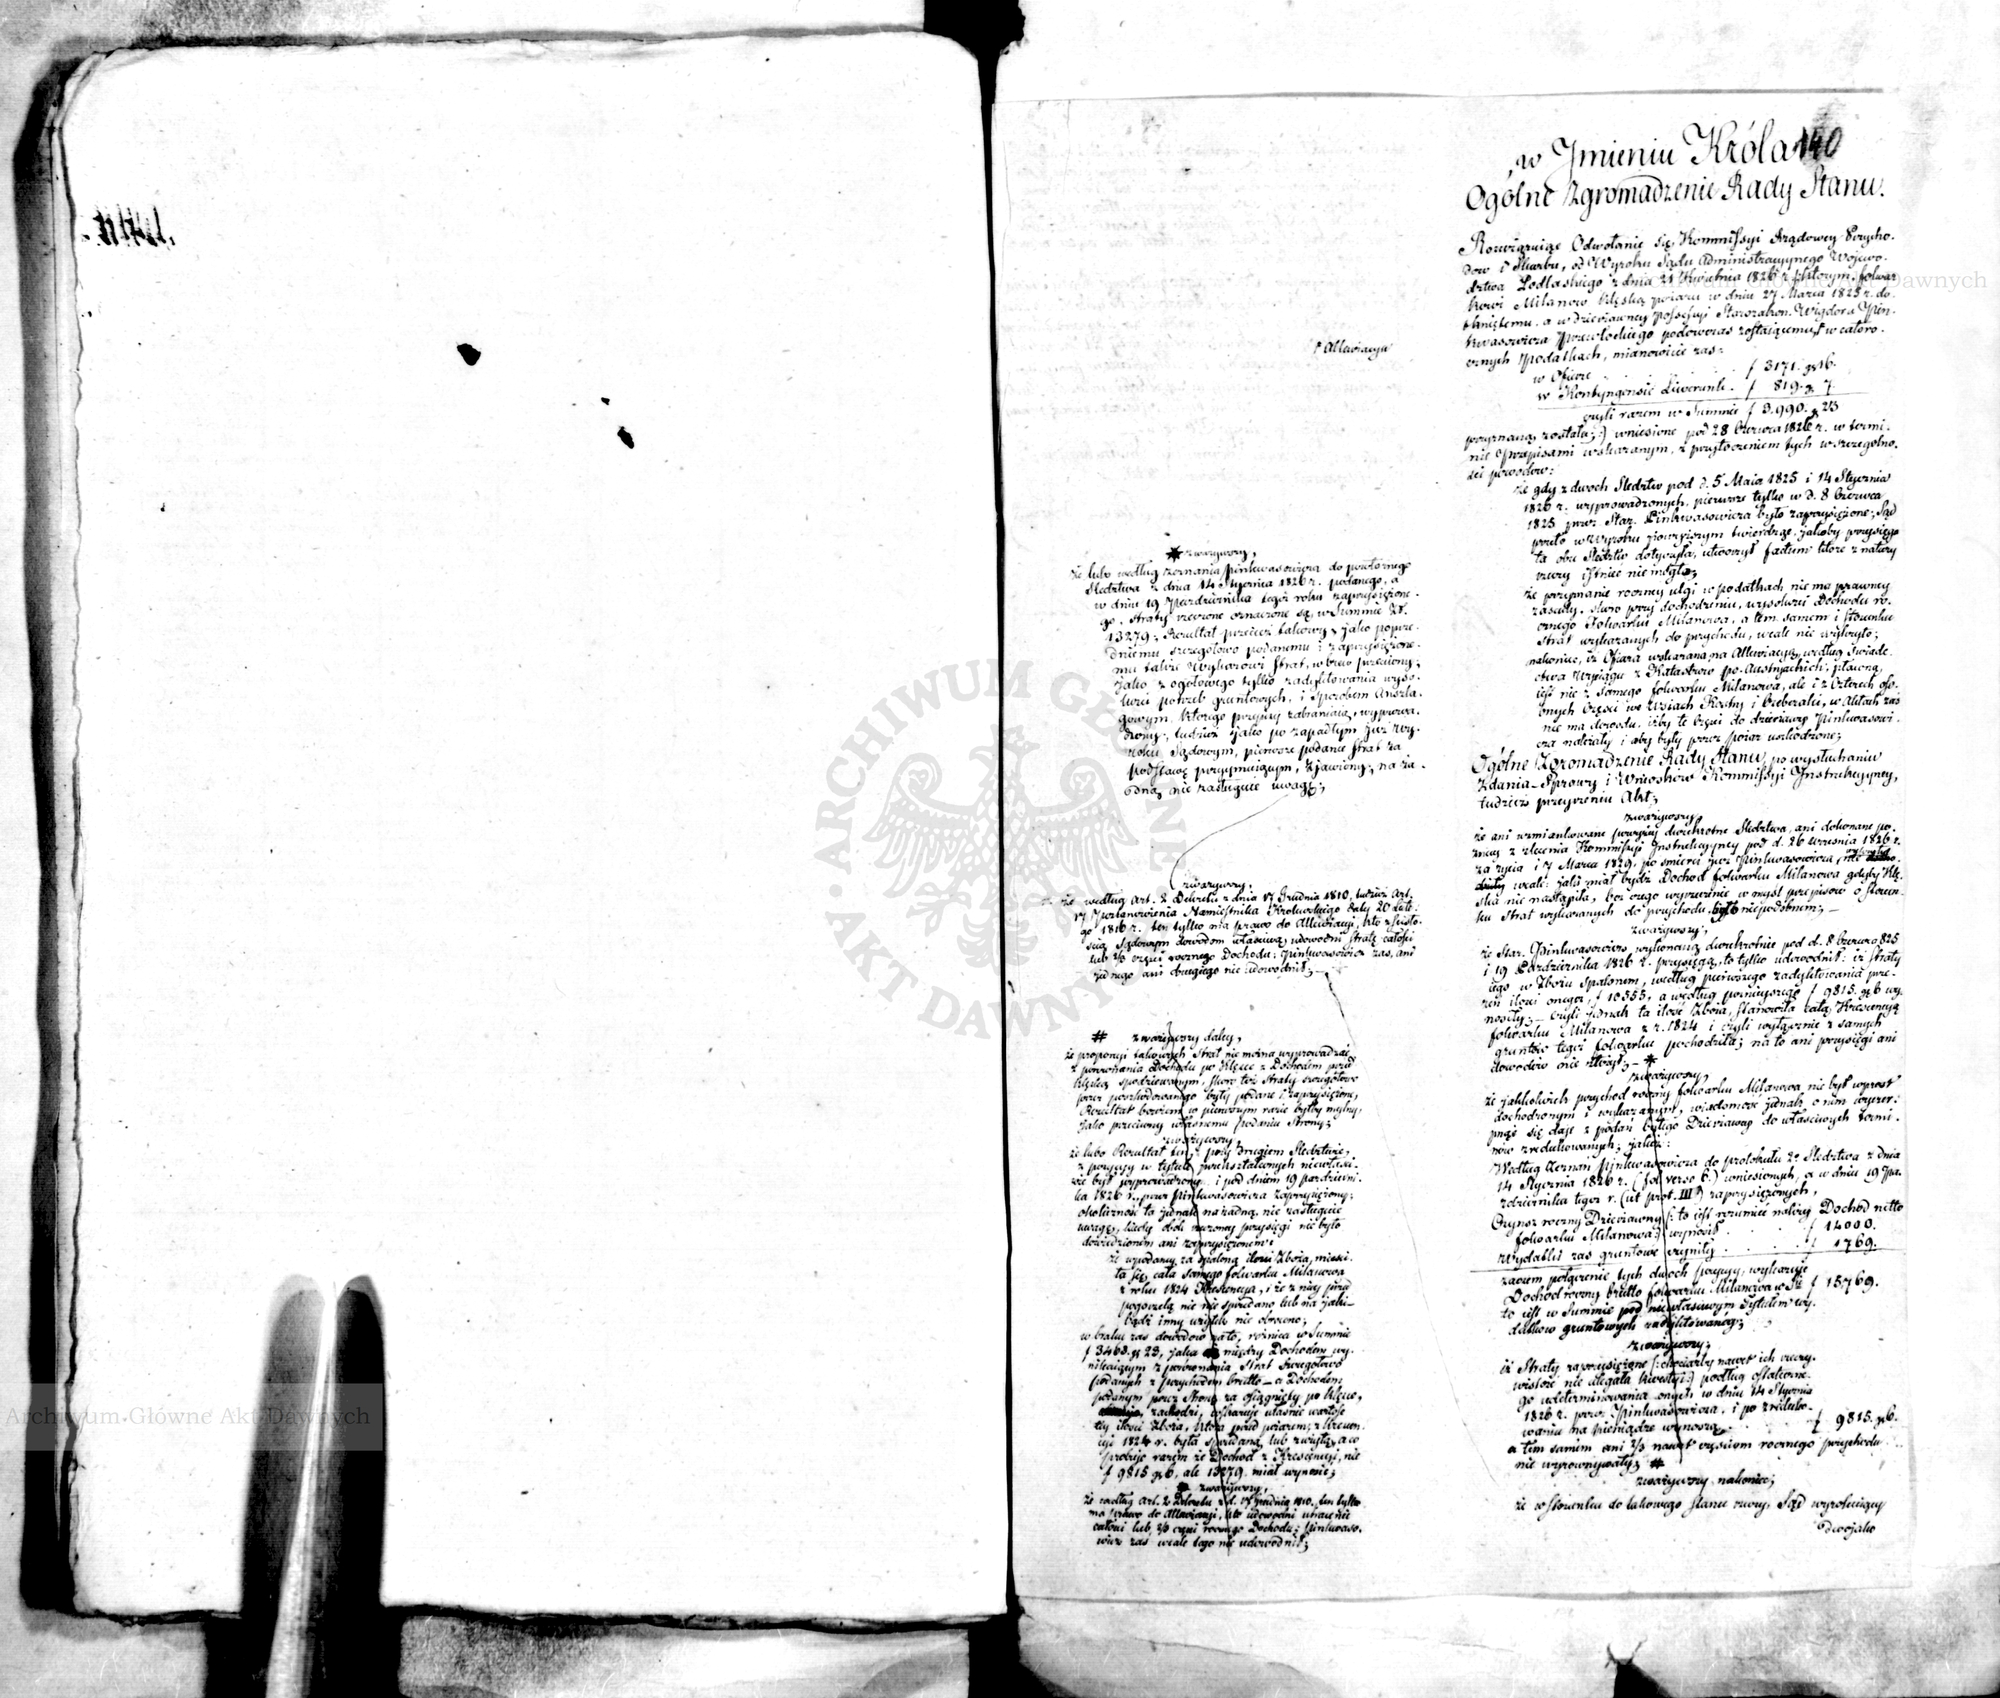 140
w Jmieniu Króla
Ogólne Zgromadzenie Rady Stanu.
Rozwiązuiąc Odwołanie się Kommissyi Rządowey Przycho-
dow i Skarbu, od Wyroku Sądu Administracyynego Wojewo-
dztwa Podlaskiego z dnia 21 Kwietnia 1826 r. którym, folwar-
kowi Milanow klęską pożaru w dniu 27 Marca 1825 r. do-
tkniętemu, a w dzierżawney Possessyi Starozakon. Wigdora Pin-
kwasowicza Przewłockiego podowczas zostaiącemu, w całoro-
cznych Podatkach, mianowicie zas:
w Ofierze . . . f 3171. gr 16.
w Kontyngensie Liwerunk. f 819. g. 7.
czyli razem w Summie f 3.990. g 23
przyznaną została; wniesione pod 28 Czerwca 1826 r. w termi-
nie Przepisami wskazanym, z przytoczeniem tych w szczegolno-
ści powodow:
że gdy z dwoch Sledztw pod d. 5 Maia 1825 i 14 Stycznia
1826 r. wyprowadzonych, pierwsze tylko w d. 8 Czerwca
1825 przez Star. Pinkwasowicza było zaprzysiężone; Sąd
przeto w Wyroku powyższym twierdząc, jakoby przysięga
ta obu Sledztw dotyczyła, utworzył factum które z natury
rzeczy istnieć nie mogło;
że przyznanie roczney ulgi w podatkach, nie ma prawney
zasady, skoro przy dochodzeniu, wysokości Dochodu ro-
cznego Folwarku Milanowa, a tem samem i stosunku
strat wykazanych do przychodu, wcale nie wykryto;
nakoniec, iż Ofiara wskazana na Allewiacyą, według Świade-
ctwa Wyciągu z Katastrow po-Austryackich, płaconą
jest nie z samego folwarku Milanowa, ale i z Czterech oso-
bnych Części we Wsiach Kostry i Cieberaki, w Aktach zaś
nie ma dowodu, iżby te Części do dzierżawy Pinkwasowi-
cza należały i aby były przez pożar uszkodzone;
Ogólne Zgromadzenie Rady Stanu, po wysłuchaniu
Zdania-Sprawy i Wniosków Kommissyi Instrukcyyney,
tudzież przeyrzeniu Akt;
zważywszy,
że ani wzmiankowane powyżey dwukrotne Sledztwa, ani dokonane po-
źniey z zlecenia Kommissyi Instrukcyyney pod d. 26 Września 1826 r.
za życia i 7 Marca 1829, po śmierci już Pinkwasowicza, nie
wcale: jaki miał bydź Dochod folwarku Milanowa gdyby Klę-
ska nie nastąpiła, bez czego wyrzeczenie w myśl przepisow o stosun-
ku strat wykazanych do przychodu, było niepodobnem; —
zważywszy,
że Star. Pinkwasowicz wykonaną dwukrotnie pod d. 8 Czerwca 825
i 19 Października 1826 r. przysięgą, to tylko udowodnił: iż straty
iego w Zbożu spalonem, według pierwszego zadyktowania prze-
zeń ilości onego, f 10555, a według poźnieyszego f 9815. gr 6 wy-
nosiły; — czyli jednak ta ilość Zboża, stanowiła całą Krescencyą
folwarku Milanowa z r. 1824 i czyli wyłącznie z samych
gruntów tegoż folwarku pochodziła; na to ani przysięgi ani
dowodów nie złożył; — *
zważywszy,
że jakkolwiek przychod roczny folwarku Milanowa nie był wprost
dochodzonym i wykazanym, wiadomość jednak o nim wyczer-
pnąć się daje z podań byłego Dzierżawcy do właściwych termi-
nów zredukowanych; jakoż:
Według Zeznań Pinkwasowicza do protokułu 2o Sledztwa z dnia
14 Stycznia 1826 r. (fol. verso 6.) wniesionych, a w dniu 19 Pa-
zdziernika tegoż r. (ut prot. III) zaprzysiężonych,
Czynsz roczny Dzierżawny (: to jest rozumieć należy Dochod netto
folwarku Milanowa:) wynosił . . . f 14000.
Wydatki zas gruntowe czyniły . . . f 1769.
zaczem połączenie tych dwoch pozycyy, wykazuje
Dochod roczny brutto folwarku Milanowa w Sū f 15769.
to jest w Summie pod niewłaściwym tytułem wy-
datkow gruntowych zadyktowaney;
zważywszy;
iż Straty zaprzysiężone (: chociażby nawet ich rzeczy-
wistość nie ulegała kwestyi:) podług ostateczne-
go udeterminowania onych w dniu 14 Stycznia
1826 r. przez Pinkwasowicza, i po zreduko-
waniu na pieniądze wynoszą . . f 9815. gr 6.
a tem samem ani 2/3 nawet częściom rocznego przychodu
nie wyrownywały; #
zważywszy nakoniec;
że w stosunku do takowego stanu rzeczy, Sąd wyrokuiący
dwojako
r Allewiacya
* zważywszy,
że lubo według zeznania Pinkwasowicza do powtornego
Sledztwa z dnia 14 Stycznia 1826 r. podanego, a
w dniu 19 Października tegoż roku zaprzysiężone-
go, straty rzeczone oznaczone są w Summie Zł.
13279; Rezultat przecież takowy, jako poprze-
dniemu szczegolowo podanemu i zaprzysiężone-
mu także Wykazowi strat, wbrew przeciwny;
jako z ogołowego tylko zadyktowania wyso-
kości potrzeb gruntowych, i sposobem Analo-
gowym, którego przepisy zabraniaią, wyprowa-
dzony; tudzież jako po zapadłym już Wy-
roku Sądowym, pierwsze podanie strat za
podstawę przyymuiącym, zjawiony; na ża-
dną nie zasługuie uwagę;
zważywszy,
że według Art. 2 Dekretu z dnia 17 Grudnia 1810, tudzież Art.
17 Postanowienia Namiestnika Krolewskiego daty 20 Lute-
go 1816 r. ten tylko ma prawo do Allewiacyi, kto
Sądowym dowodem właściwą udowodni stratę całości
lub 2/3 części rocznego Dochodu; Pinkwasowicz zas, ani
jednego ani drugiego nie udowodnił; —
# zważywszy daley,
że proporcyi takowych strat nie można wyprowadzać
z porownania Dochodu po Klęsce z Dochodem przed
Klęską spodziewanym, skoro też straty szczegółowo
przez poszkodowanego były podane i zaprzysiężone,
Rezultat bowiem w pierwszym razie byłby mylny,
jako przeciwny własnemu podaniu Strony;
zważywszy
że lubo Rezultat ten, przy drugiem Sledztwie,
z pozycyy w tytule przekształconych niewłaści-
wie był wyprowadzony, i pod dniem 19 Październi-
ka 1826 r. przez Pinkwasowicza zaprzysiężony;
okoliczność ta jednak na żadną nie zasługuie
uwagę, kiedy obok rzeczoney przysięgi nie było
dowiedzionem ani zaprzysiężonem:
że w podaney za spaloną ilości Zboża, mieści-
ła się cała samego folwarku Milanowa
z roku 1824 Krescencya, i że z niey przed
pogorzelą nic nie sprzedano lub na jaki-
bądź inny użytek nie obrocono;
w braku zas dowodow na to, rożnica w Summie
f 3463. gr 23, jaka między Dochodem wy-
nikaiącym z porownania Strat szczegołowo
podanych z przychodem brutto — a Dochodem
podanym przez Stronę za osiągnięty po Klęsce,
zachodzi, wskazuje właśnie wartość
tey ilości Zboża, która przed pożarem z Krescen-
cyi 1824 r. była sprzedaną lub zużytą, a co
probuje razem że Dochod z Krescencyi, nie
f 9815 gr 6, ale 13279. miał wynosić;
zważywszy,
że według Art. 2 Dekretu z d. 17 Grudnia 1810. ten tylko
ma prawo do Allewiacyi, kto udowodni utracenie
całości lub 2/3 części rocznego Dochodu; Pinkwaso-
wicz zas wcale tego nie udowodnił;
ARCHIWUM GŁÓWNE AKT DAWNYCH
Archiwum Główne Akt Dawnych
Archiwum Główne Akt Dawnych